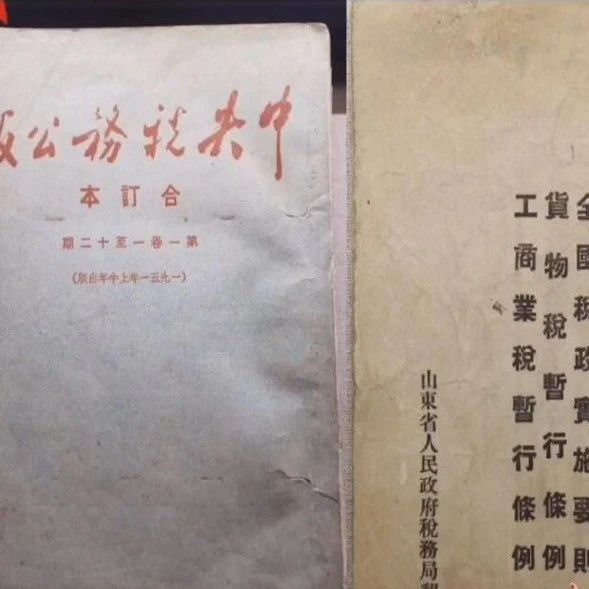 中央税務公
合訂本
第一卷一至十二期
(一九五一年上半年出版)
全國稅政實施要則
貨物稅暫行條例
工商業稅暫行條例
山東省人民政府稅務局